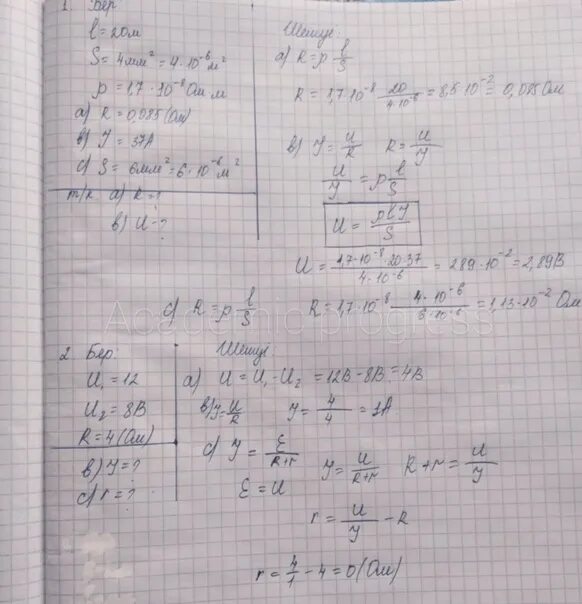 1. Бер
l = 20м
S = 4мм² = 4·10⁻⁶м²
ρ = 1,7·10⁻⁸ Ом м
а) R = 0,085 (Ом)
в) У = 37А
с) S = 6мм² = 6·10⁻⁶м²
т/к а) R = ?
в) U - ?
Шешуі:
а) R = ρ l/S
R = 1,7·10⁻⁸ 20/4·10⁻⁶ = 8,5·10⁻² = 0,085 Ом
в) У = U/R R = U/У
U/У = ρ l/S
U = ρlУ/S
U = 1,7·10⁻⁸·20·37/4·10⁻⁶ = 289·10⁻² = 2,89В
с) R = ρ l/S R = 1,7·10⁻⁸ 4·10⁻⁶/6·10⁻⁶ = 1,13·10⁻² Ом
Academic progress
2. Бер: Шешуі:
U₁ = 12
U₂ = 8В
R = 4 (Ом)
в) У = ?
с) r = ?
а) U = U₁ - U₂ = 12В - 8В = 4В
в) У = U/R У = 4/4 = 1А
с) У = Ɛ/R+r У = U/R+r R + r = U/У
Ɛ = U
r = U/У - R
r = 4/1 - 4 = 0 (Ом)